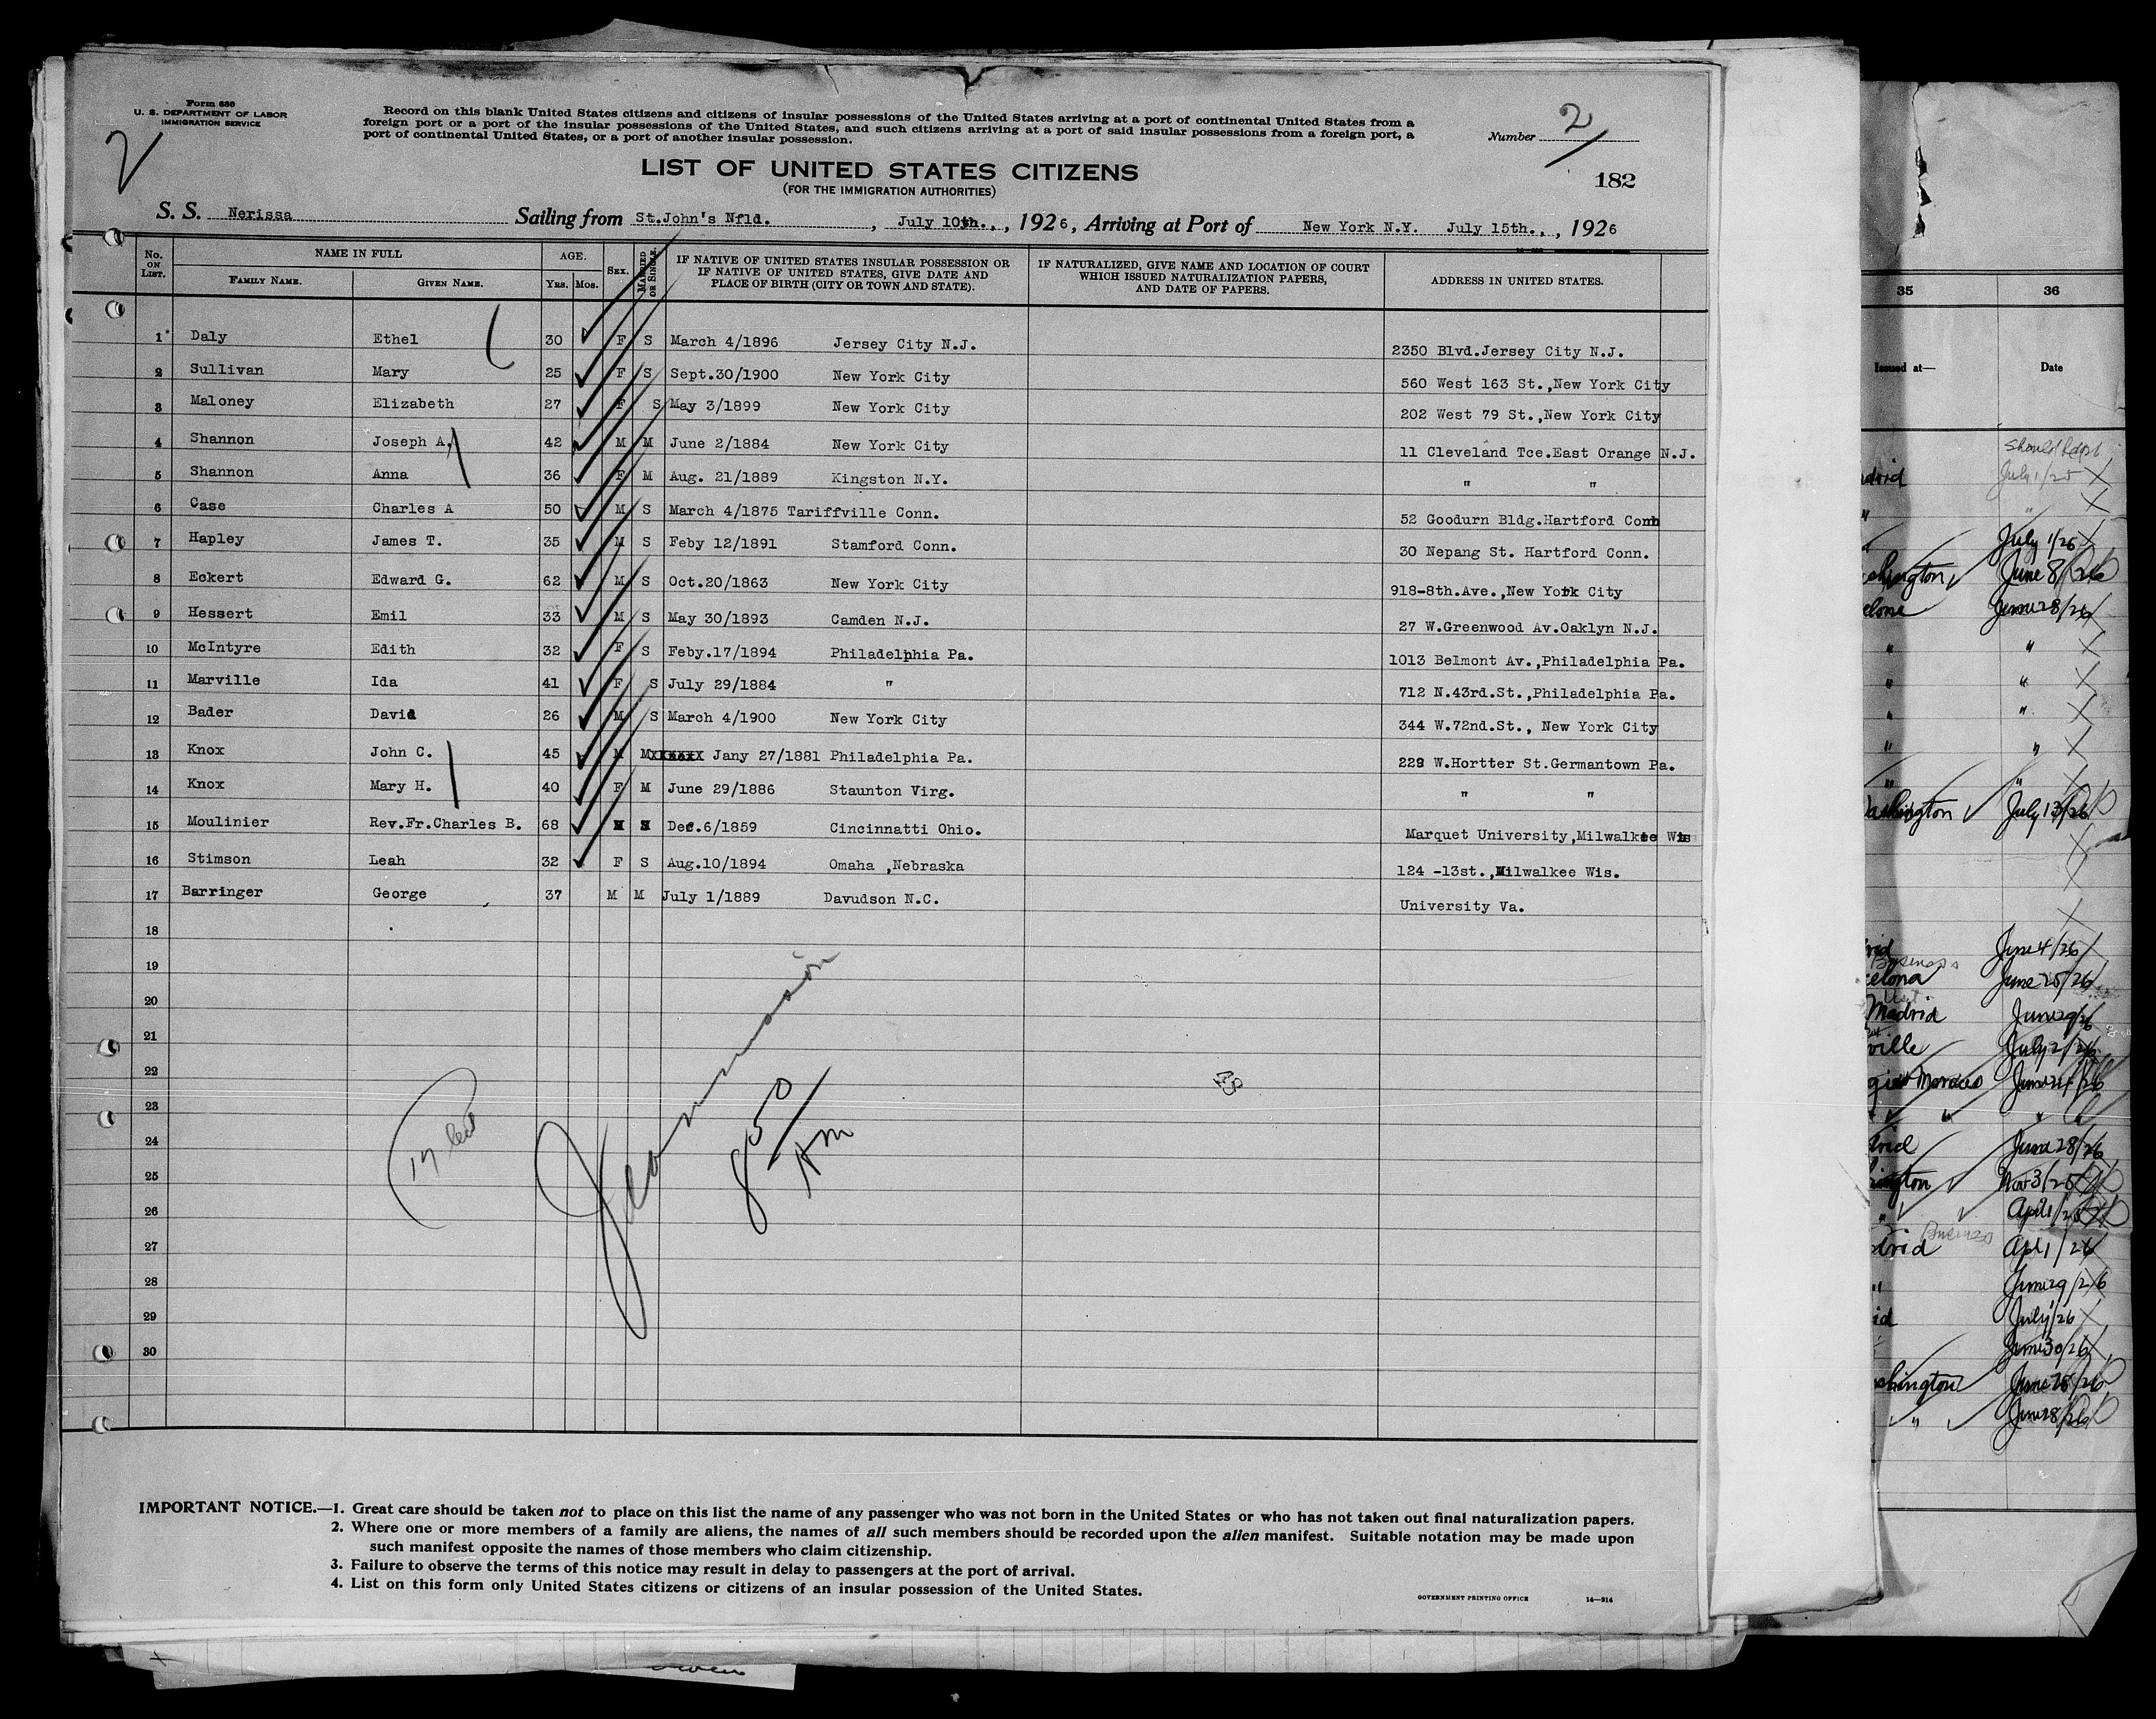 Form 680
U. S. DEPARTMENT OF LABOR
IMMIGRATION SERVICE
2
Record on this blank United States citizens and citizens of insular possessions of the United States arriving at a port of continental United States from a
foreign port or a port of the insular possessions of the United States, and such citizens arriving at a port of said insular possessions from a foreign port, a
port of continental United States, or a port of another insular possession.
Number 2
LIST OF UNITED STATES CITIZENS
(FOR THE IMMIGRATION AUTHORITIES)
182
S. S. Nerissa Sailing from St.John's Nfld. , July 10th., , 1926, Arriving at Port of New York N.Y. July 15th., , 1926
No. ON LIST. NAME IN FULL FAMILY NAME. GIVEN NAME. AGE. Yrs. Mos. SEX. MARRIED OR SINGLE. IF NATIVE OF UNITED STATES INSULAR POSSESSION OR IF NATIVE OF UNITED STATES, GIVE DATE AND PLACE OF BIRTH (CITY OR TOWN AND STATE). IF NATURALIZED, GIVE NAME AND LOCATION OF COURT WHICH ISSUED NATURALIZATION PAPERS, AND DATE OF PAPERS. ADDRESS IN UNITED STATES.
1 Daly Ethel 30 F S March 4/1896 Jersey City N.J. 2350 Blvd.Jersey City N.J.
2 Sullivan Mary 25 F S Sept.30/1900 New York City 560 West 163 St.,New York City
3 Maloney Elizabeth 27 F S May 3/1899 New York City 202 West 79 St.,New York City
4 Shannon Joseph A. 42 M M June 2/1884 New York City 11 Cleveland Tce.East Orange N.J.
5 Shannon Anna 36 F M Aug. 21/1889 Kingston N.Y. " "
6 Case Charles A 50 M S March 4/1875 Tariffville Conn. 52 Goodurn Bldg.Hartford Conn
7 Hapley James T. 35 M S Feby 12/1891 Stamford Conn. 30 Nepang St. Hartford Conn.
8 Eckert Edward G. 62 M S Oct.20/1863 New York City 918-8th.Ave.,New York City
9 Hessert Emil 33 M S May 30/1893 Camden N.J. 27 W.Greenwood Av.Oaklyn N.J.
10 McIntyre Edith 32 F S Feby.17/1894 Philadelphia Pa. 1013 Belmont Av.,Philadelphia Pa.
11 Marville Ida 41 F S July 29/1884 " 712 N.43rd.St.,Philadelphia Pa.
12 Bader David 26 M S March 4/1900 New York City 344 W.72nd.St., New York City
13 Knox John C. 45 M M Jany 27/1881 Philadelphia Pa. 229 W.Hortter St.Germantown Pa.
14 Knox Mary H. 40 F M June 29/1886 Staunton Virg. " "
15 Moulinier Rev.Fr.Charles B. 68 Dec.6/1859 Cincinnatti Ohio. Marquet University,Milwalkee Wis
16 Stimson Leah 32 F S Aug.10/1894 Omaha ,Nebraska 124 -13st.,Milwalkee Wis.
17 Barringer George 37 M M July 1/1889 Davudson N.C. University Va.
18
19
20
21
22
23
24
25
26
27
28
29
30
48
850
AM
IMPORTANT NOTICE.—1. Great care should be taken not to place on this list the name of any passenger who was not born in the United States or who has not taken out final naturalization papers.
2. Where one or more members of a family are aliens, the names of all such members should be recorded upon the alien manifest. Suitable notation may be made upon
such manifest opposite the names of those members who claim citizenship.
3. Failure to observe the terms of this notice may result in delay to passengers at the port of arrival.
4. List on this form only United States citizens or citizens of an insular possession of the United States.
GOVERNMENT PRINTING OFFICE 14—214
35 36
Issued at— Date
July 1/25
"
July 1/26
June 8/26
June 28/26
" "
" "
" "
" "
" "
Washington July 13/26
June 4/26
Business
June 25/26
Madrid June 29/26
July 2/26
Morocco June 24/26
" "
June 28/26
Nov 3/25
" April 1/25
Business
Apl 1/26
" June 29/26
July 1/26
June 30/26
June 28/26
" June 28/26